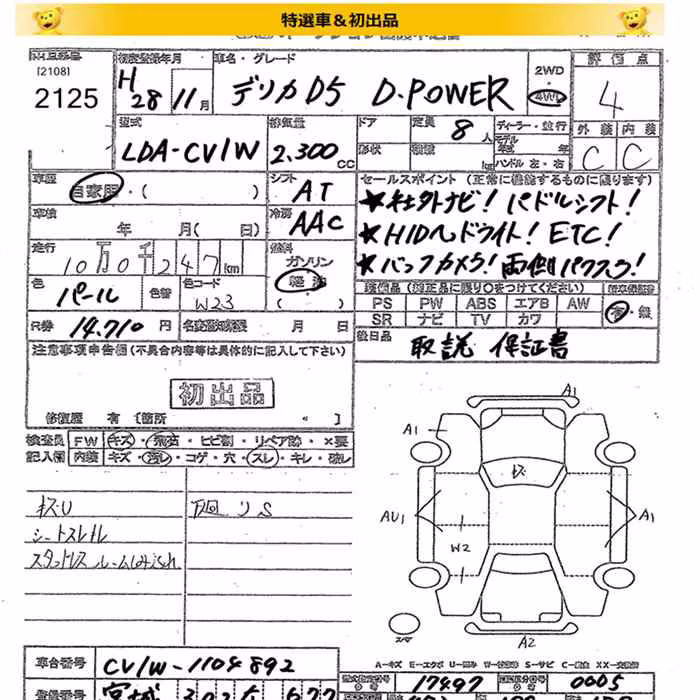 特選車＆初出品
[2108]
2125
初度登録年月
H 28年 11月
車名・グレード
デリカD5 D-POWER
2WD
4WD
評価点
4
外装 内装
C C
型式
LDA-CV1W
排気量
2.300 CC
ドア
形状
定員
8人
積載
kg
ディーラー・並行
モデル年式 年
ハンドル 左・右
車歴
自家用・( )
シフト
AT
車検
年 月( 日)
冷房
AAC
走行
10万0千247km
燃料
ガソリン
軽油
色
パール
色替
色コード
W23
R券 14.710 円
名変期限 月 日
セールスポイント（正常に機能するものに限ります）
★社外ナビ! パドルシフト!
★HIDヘッドライト! ETC!
★バックカメラ! 両側パワスラ!
装備品（純正品に限り○をつけてください）
PS PW ABS エアB AW
SR ナビ TV カワ
新車保証書
有・無
後日品
取説 保証書
注意事項申告欄（不具合内容等は具体的に記入して下さい）
初出品
修復歴 有 〔箇所 〕
検査員 FW キズ・飛石・ヒビ割・リペア跡・×要
記入欄 内装 キズ・汚レ・コゲ・穴・スレ・キレ・破レ
キズU
下回りS
シートスレ
A1
A1
AU1
A1
W2
A2
スペア
A-キズ E-エクボ U-凹み W-板金跡 S-サビ C-腐食 XX-交換済
車台番号 CV1W-1104892
登録番号 宮城 302
型式指定番号 17497
類別区分番号 0005